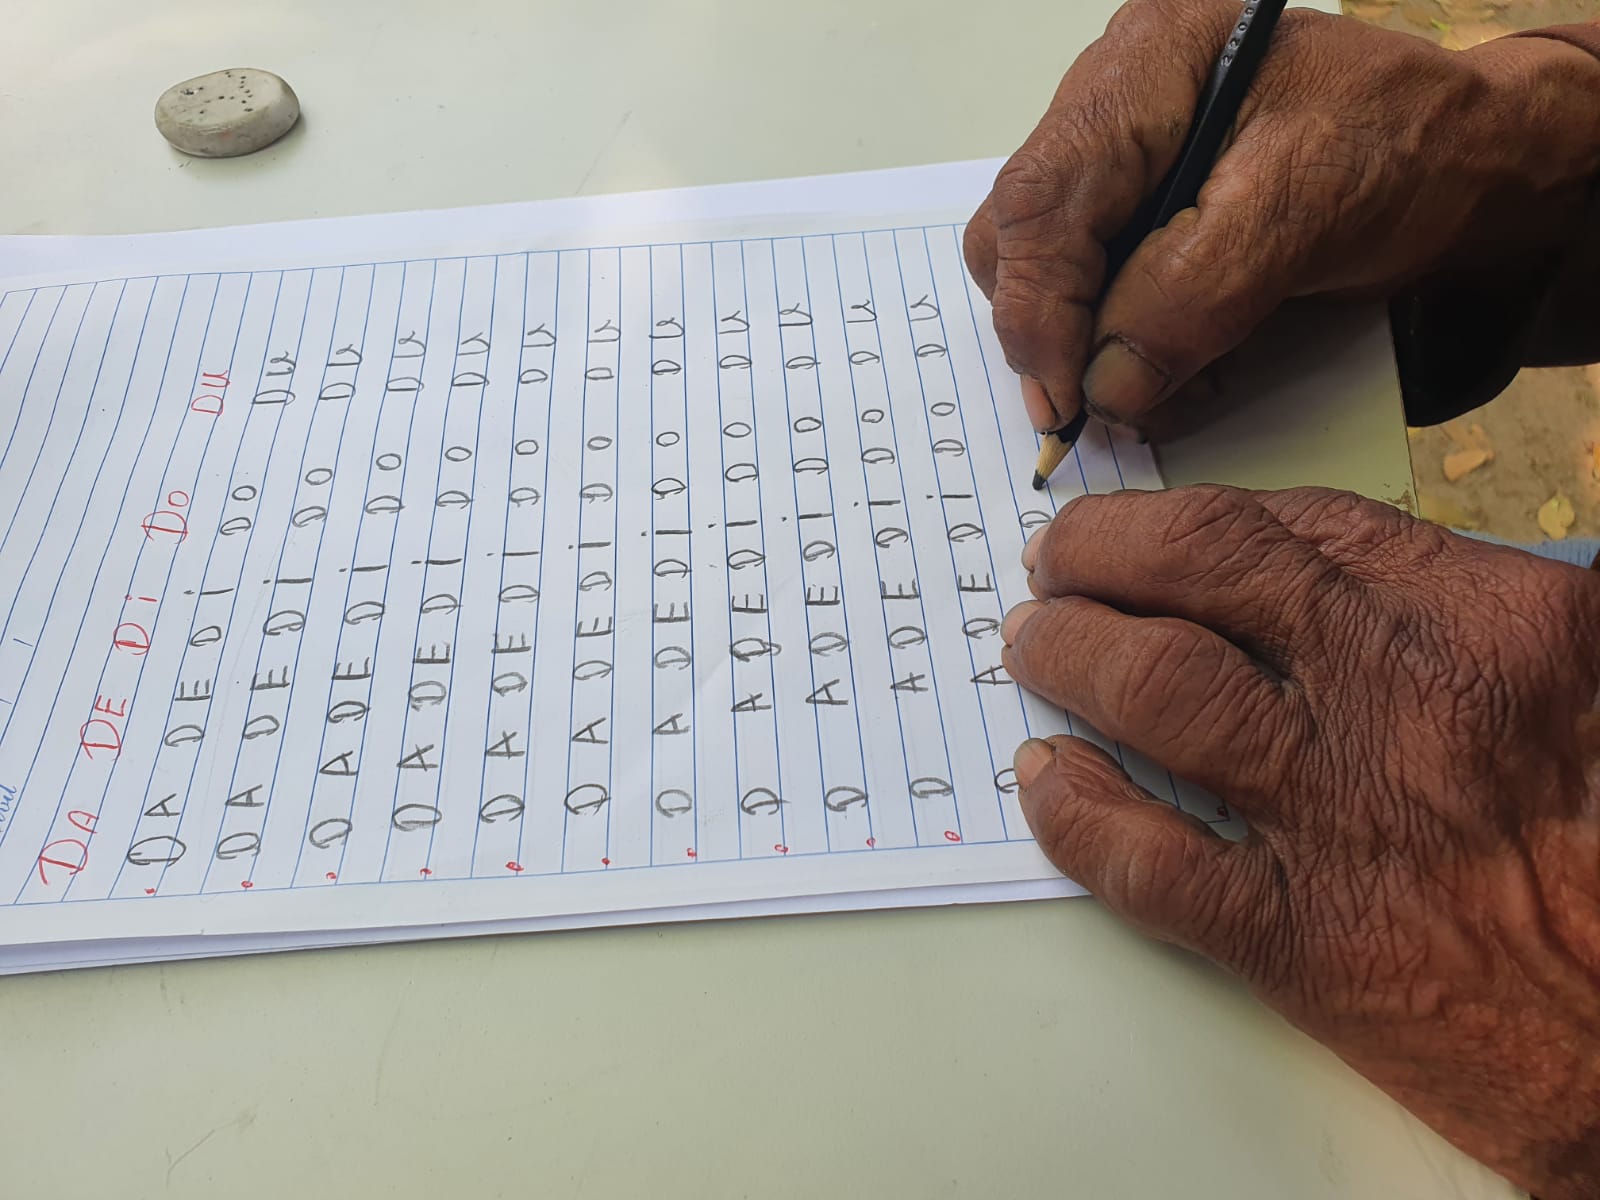 DA DE Di DO DU
DA DE Di DO DU
DA DE Di DO DU
DA DE Di DO DU
DA DE Di DO DU
DA DE Di DO DU
DA DE Di DO DU
DA DE Di DO DU
DA DE Di DO DU
DA DE Di DO DU
DA DE Di DO DU
DA DE Di DO DU
D